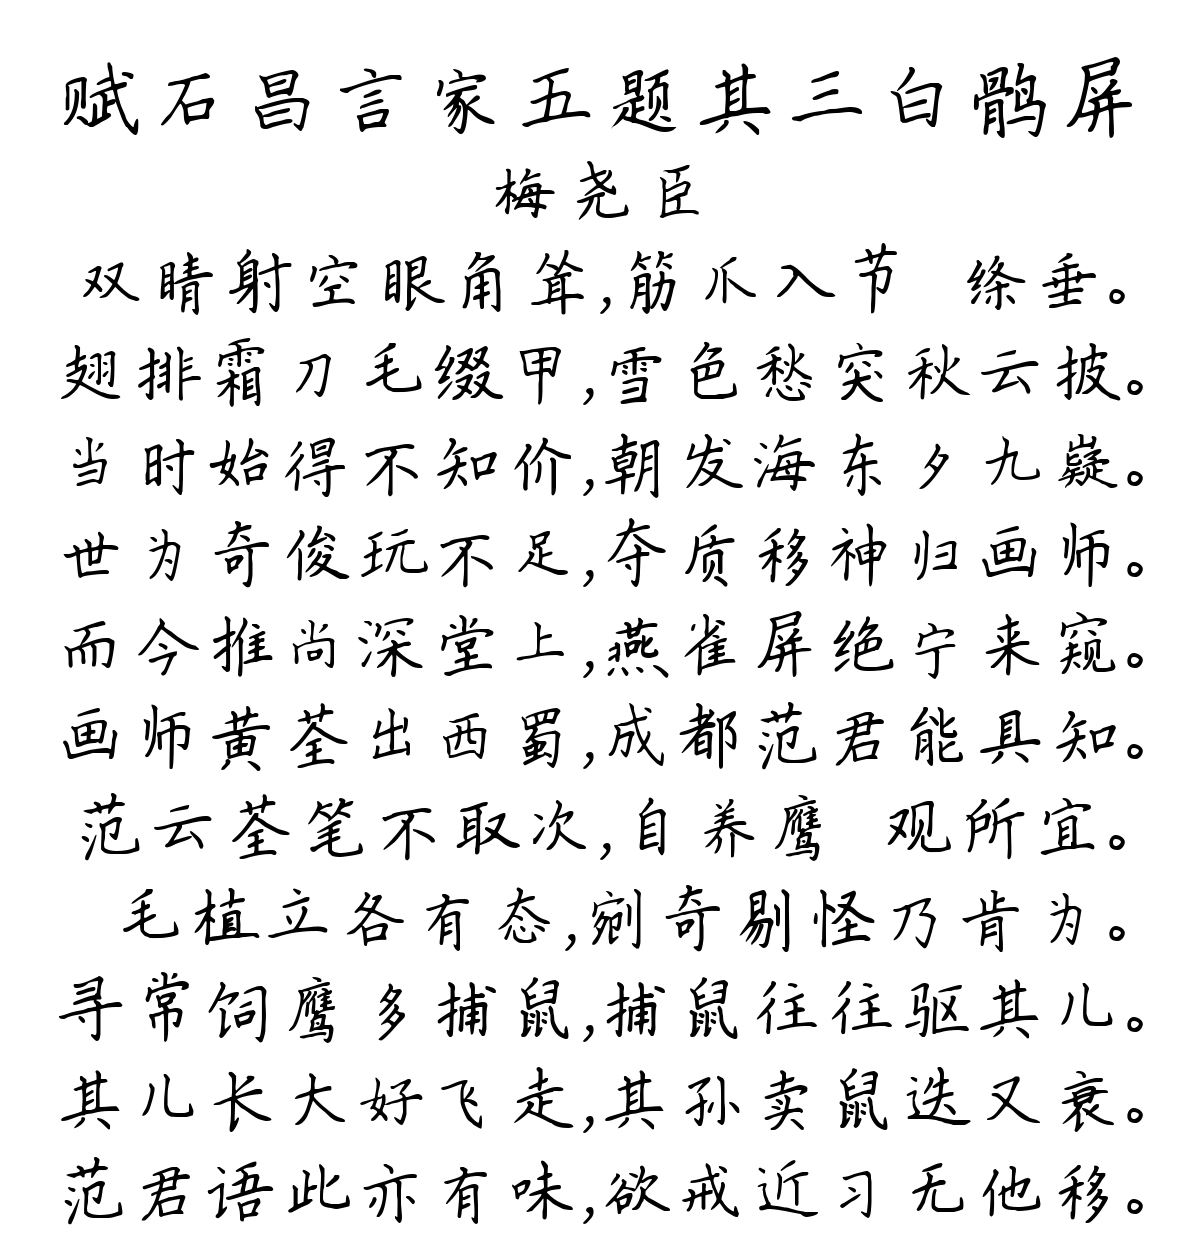 赋石昌言家五题其三白鹘屏
梅尧臣
双睛射空眼角耸,筋爪入节 绦垂。
翅排霜刀毛缀甲,雪色愁突秋云披。
当时始得不知价,朝发海东夕九嶷。
世为奇俊玩不足,夺质移神归画师。
而今推尚深堂上,燕雀屏绝宁来窥。
画师黄荃出西蜀,成都范君能具知。
范云荃笔不取次,自养鹰 观所宜。
毛植立各有态,剜奇剔怪乃肯为。
寻常饲鹰多捕鼠,捕鼠往往驱其儿。
其儿长大好飞走,其孙卖鼠迭又衰。
范君语此亦有味,欲戒近习无他移。